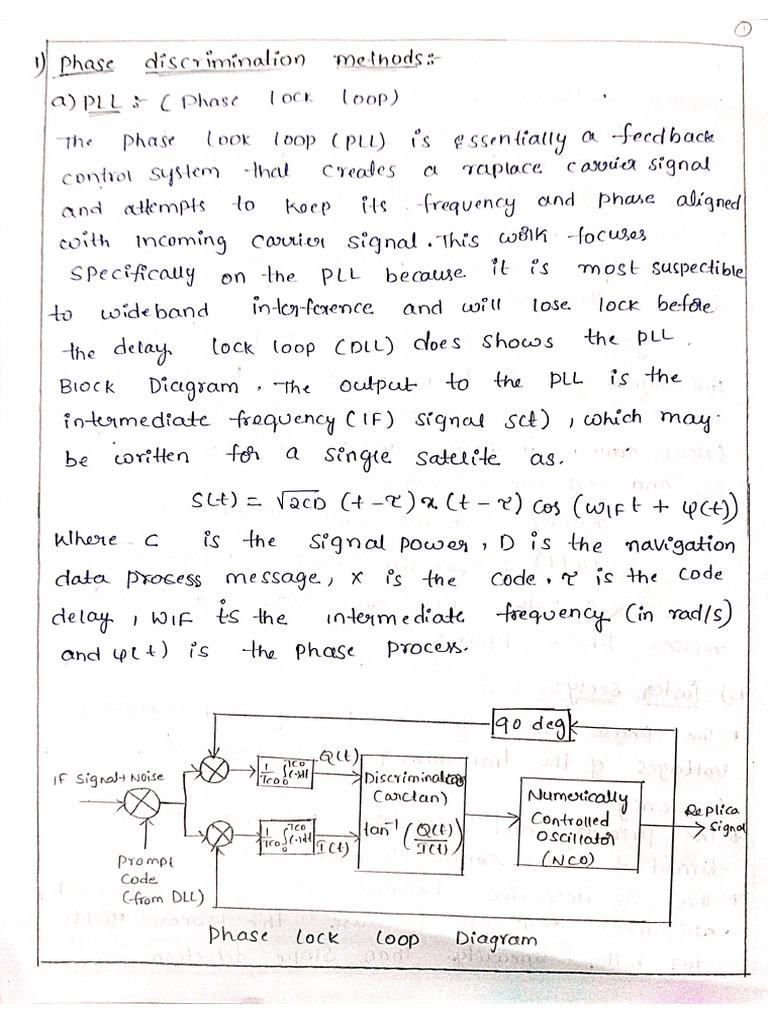 1
1) Phase discrimination methods:-
a) PLL :- ( Phase lock loop)
The Phase look loop (PLL) is essentially a feedback
control system that creates a raplace carrier signal
and attempts to keep its frequency and phase aligned
with incoming carrier signal. This walk focuses
specifically on the PLL because it is most suspectible
to wideband interference and will lose lock before
the delay lock loop (DLL) does shows the PLL.
Block Diagram. The output to the PLL is the
intermediate frequency (IF) signal s(t), which may
be written for a single satelite as.
S(t) = √2CD (t-τ) x (t-τ) cos (WIF t + φ(t))
Where C is the signal power, D is the navigation
data process message, x is the code. τ is the code
delay, WIF is the intermediate frequency (in rad/s)
and φ(t) is the phase process.
90 deg
IF Signal+Noise
Prompt
Code
(from DLL)
1/TCO ∫0^TCO (.)dt
Q(t)
1/TCO ∫0^TCO (.)dt
I(t)
Discriminator
(arctan)
tan⁻¹ (Q(t)/I(t))
Numerically
Controlled
Oscillator
(NCO)
Replica
Signal
Phase lock loop Diagram